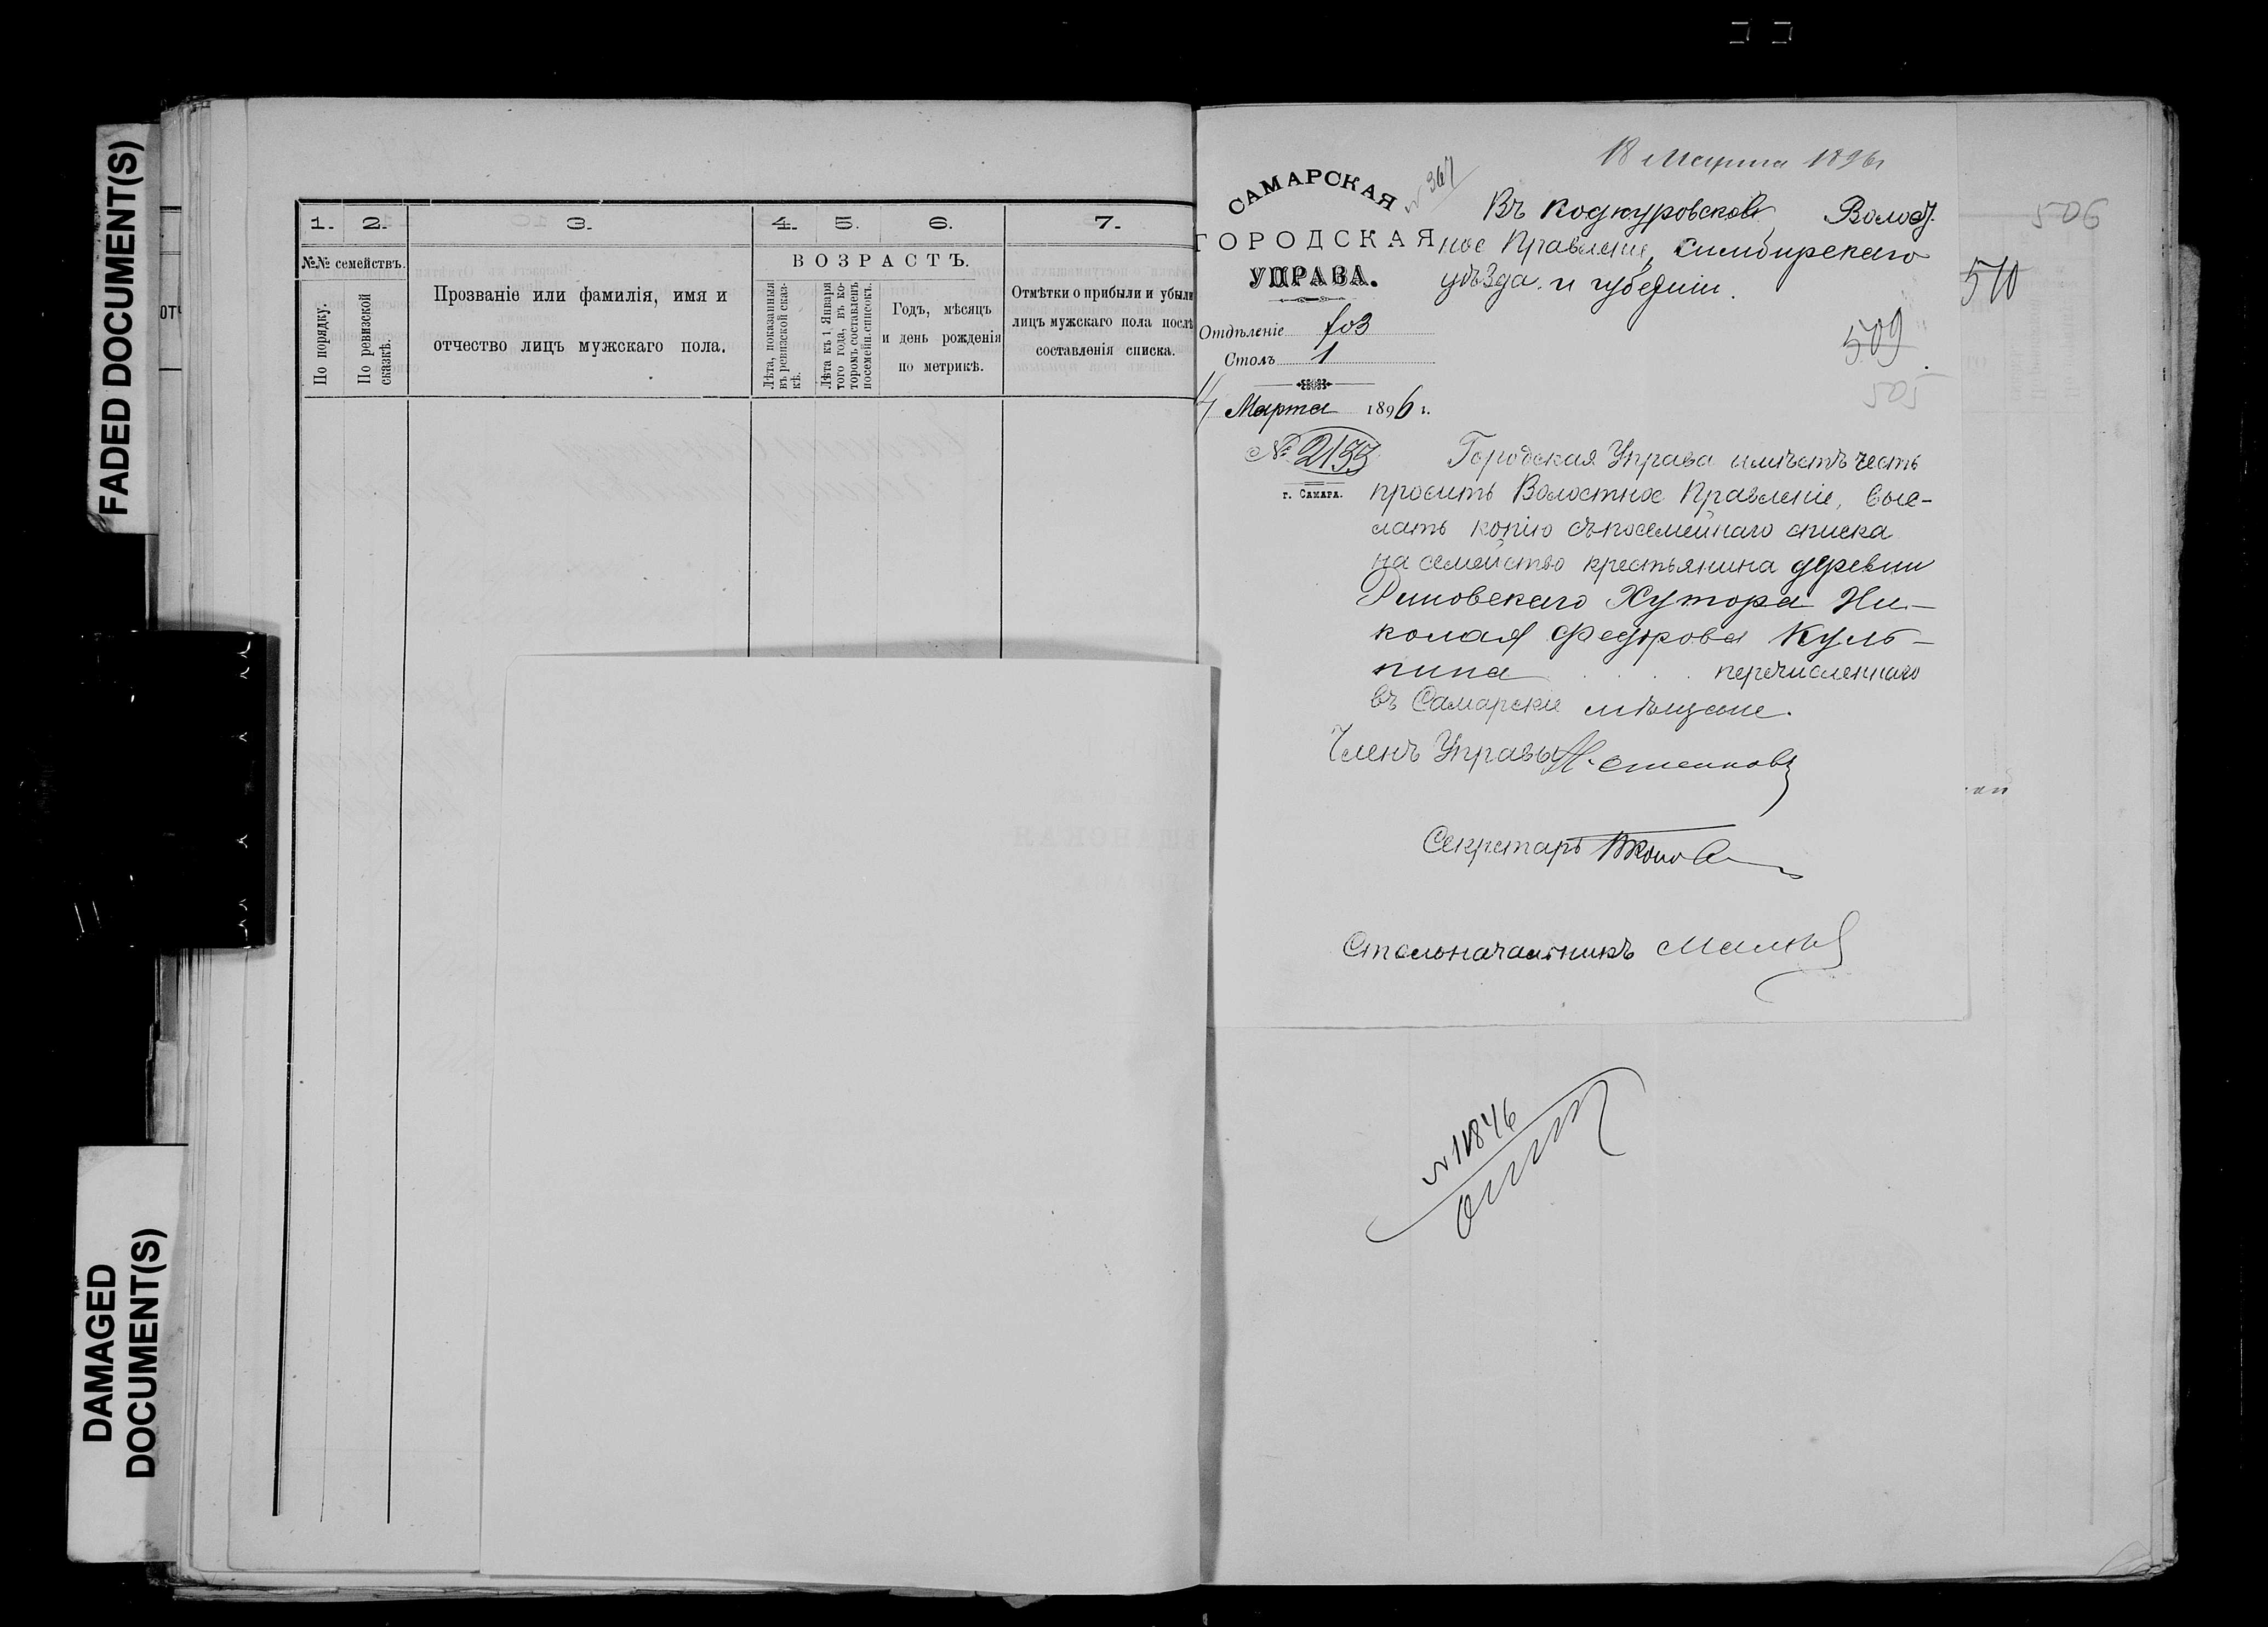 FADED DOCUMENT(S)
DAMAGED
DOCUMENT(S)
1. 2. 3. 4. 5. 6. 7.
№№ семействъ.
По порядку.
По ревизской
сказкѣ.
Прозваніе или фамилія, имя и
отчество лицъ мужскаго пола.
ВОЗРАСТЪ.
Лѣта, показанныя
въ ревизской сказ-
кѣ.
Лѣта къ 1 Января
того года, въ ко-
торомъ составленъ
посемейн. списокъ.
Годъ, мѣсяцъ
и день рожденія
по метрикѣ.
Отмѣтки о прибыли и убыли
лицъ мужскаго пола послѣ
составленія списка.
18 Марта 1896 г
САМАРСКАЯ
ГОРОДСКАЯ
УПРАВА.
№ 367
Отдѣленіе
Столъ 1
Марта 1896 г.
№ 2133
г. САМАРА.
Въ Волост.
ное Правленіе, Симбирскаго
уѣзда и губерніи.
506
510
509
505
Городская Управа имѣетъ честь
просить Волостное Правленіе, выс-
лать копію съ посемейнаго списка
на семейство крестьянина деревни
Хутора Ни-
колая Федорова Куль-
пина перечисленнаго
въ Самарскіе мѣщане.
Членъ Управы
Секретарь
Столоначальникъ